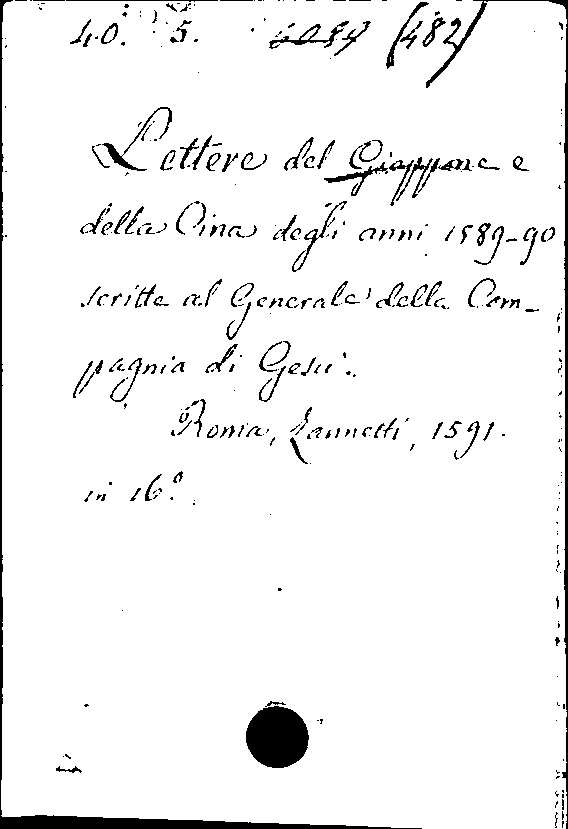 40. 5. (482)
Lettere del Giappone e
della Cina degli anni 1589-90
scritte al Generale della Com-
pagnia di Gesù.
Roma, Zannetti, 1591.
in 16°.